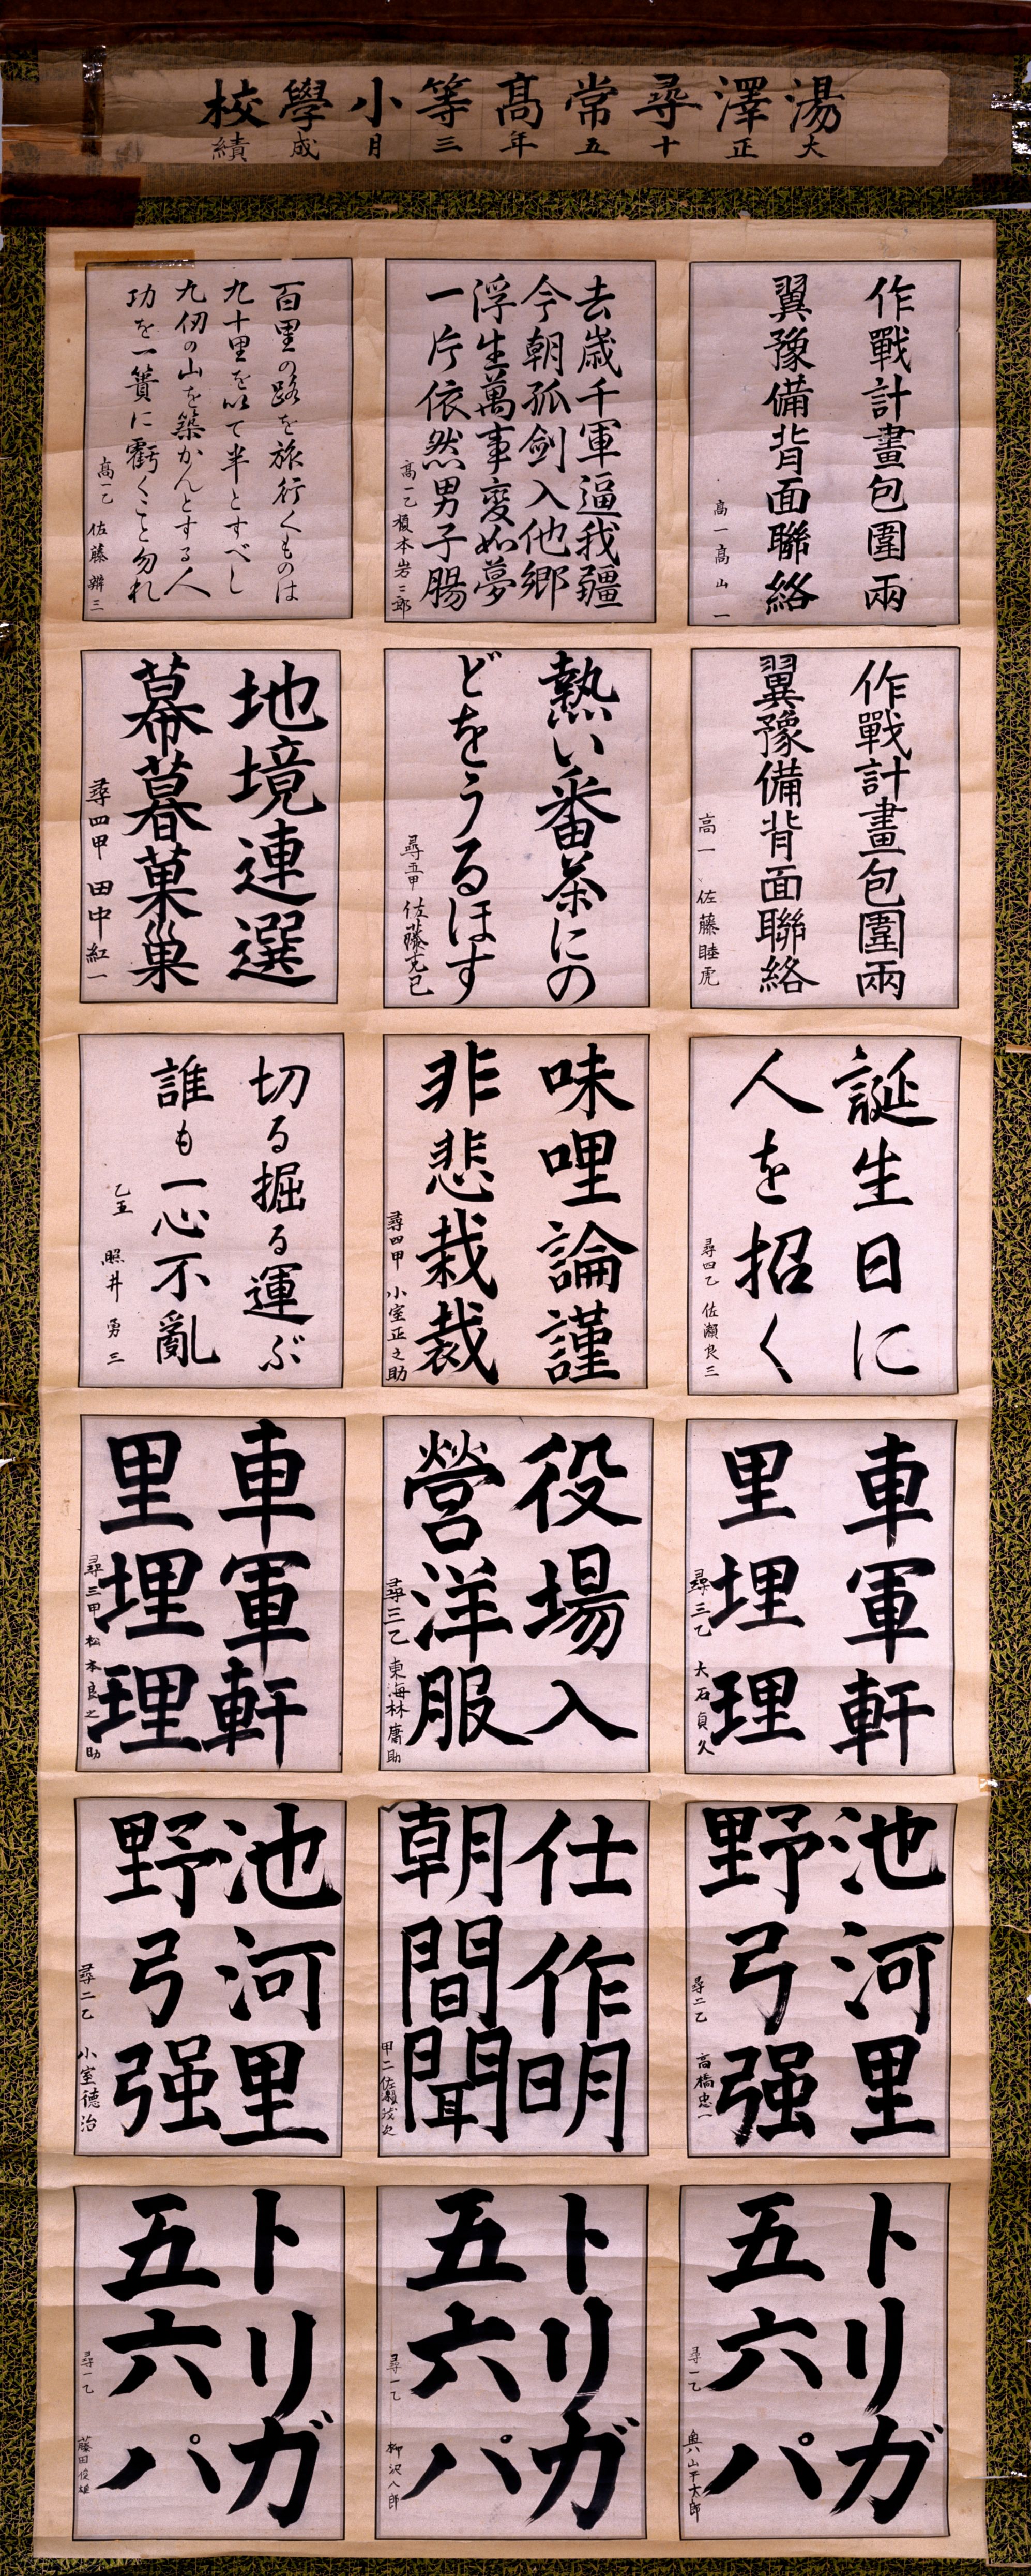 湯澤尋常高等小學校
大正十五年三月成績
作戰計畫包圍兩
翼豫備背面聯絡
高一 高山一
去歳千軍逼我疆
今朝孤剣入他郷
浮生萬事変如夢
一片依然男子腸
高一乙 榎本岩二郎
百里の路を旅行くものは
九十里を以て半とすべし
九仞の山を築かんとする人
功を一簣に虧くこと勿れ
高一乙 佐藤辨三
作戰計畫包圍兩
翼豫備背面聯絡
高一 佐藤睦虎
熱い番茶にの
どをうるほす
尋五甲 佐藤克巳
地境連選
幕暮菓巣
尋四甲 田中紅一
誕生日に
人を招く
尋四乙 佐瀬良三
味哩論謹
非悲栽裁
尋四甲 小室正之助
切る掘る運ぶ
誰も一心不亂
乙五 照井勇三
車軍軒
里埋理
尋三乙 大石貞久
役場入
營洋服
尋三乙 東海林庸助
車軍軒
里埋理
尋三甲 松本良之助
池河里
野弓强
尋二乙 高橋忠一
仕作明
朝間聞
甲二 佐瀬茂次
池河里
野弓强
尋二乙 小室德治
トリガ
五六パ
尋一乙 奥山千太郎
トリガ
五六パ
尋一乙 柳沢八郎
トリガ
五六パ
尋一乙 藤田俊雄